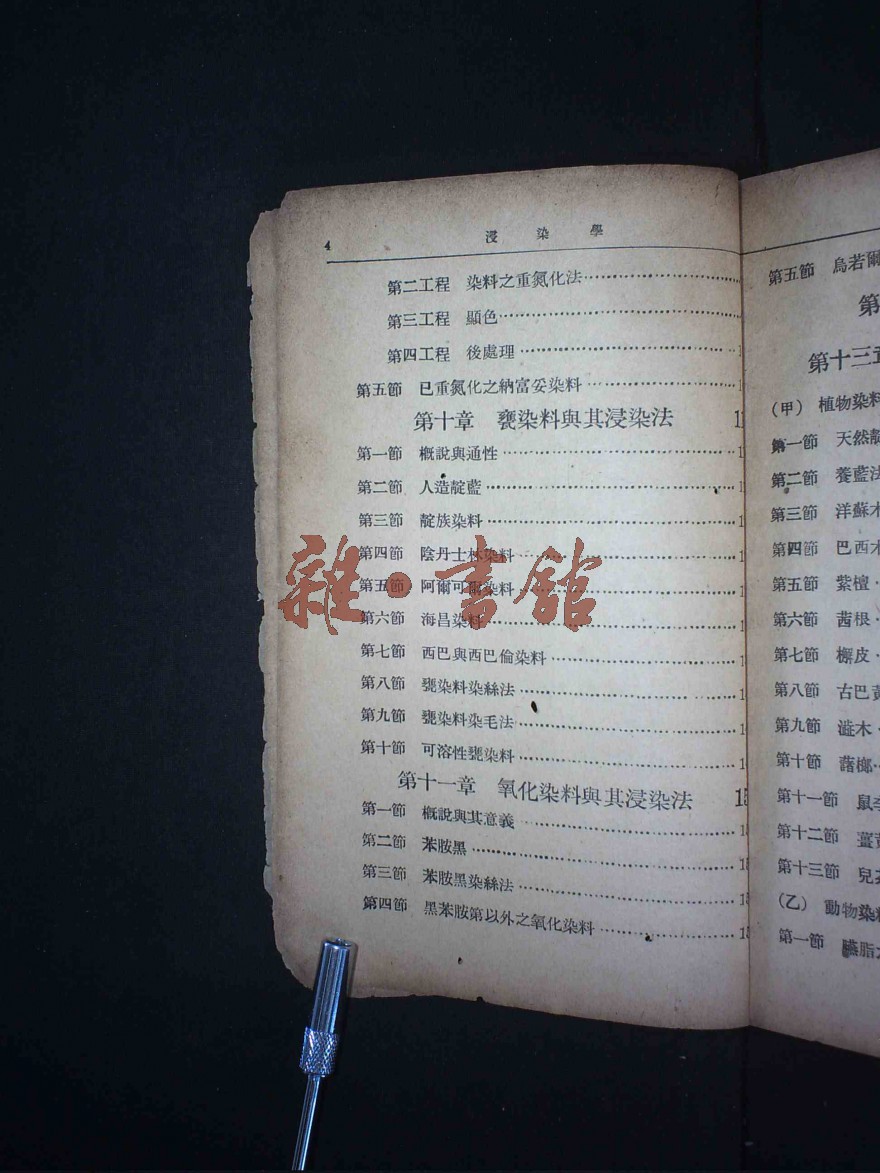 4 浸染學
第二工程 染料之重氮化法
第三工程 顯色
第四工程 後處理
第五節 已重氮化之納富妥染料
第十章 甕染料與其浸染法
第一節 概說與通性
第二節 人造靛藍
第三節 靛族染料
第四節 陰丹士林染料
第五節 阿爾可爾染料
第六節 海昌染料
第七節 西巴與西巴倫染料
第八節 甕染料染絲法
第九節 甕染料染毛法
第十節 可溶性甕染料
第十一章 氧化染料與其浸染法
第一節 概說與其意義
第二節 苯胺黑
第三節 苯胺黑染絲法
第四節 黑苯胺第以外之氧化染料
雜·書館
第五節 烏若爾
第
第十三章
(甲) 植物染料
第一節 天然靛
第二節 養藍法
第三節 洋蘇木
第四節 巴西木
第五節 紫檀
第六節 茜根
第七節 檞皮
第八節 古巴黃
第九節
第十節 藷榔
第十一節 鼠李
第十二節 薑黃
第十三節 兒茶
(乙) 動物染料
第一節 臙脂